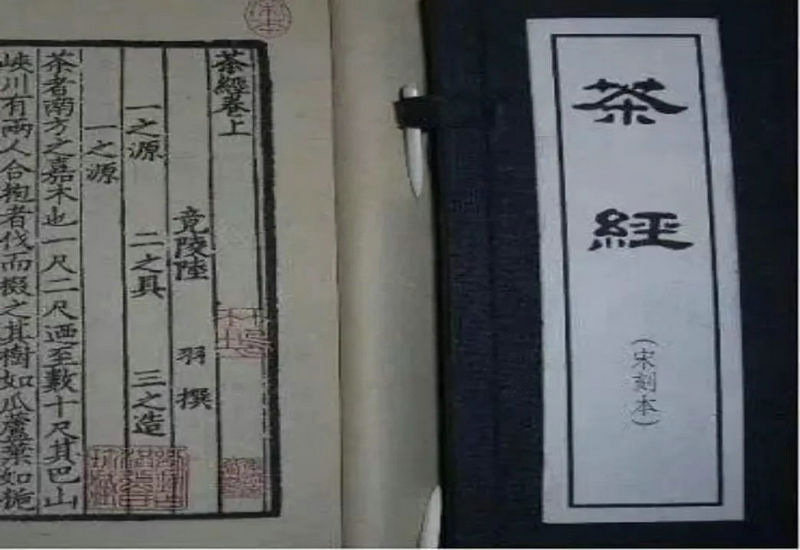 茶經卷上
竟陵陸 羽 撰
一之源 二之具 三之造
一之源
茶者南方之嘉木也一尺二尺迺至數十尺其巴山
峽川有兩人合抱者伐而掇之其樹如瓜蘆葉如梔
茶經
（宋刻本）